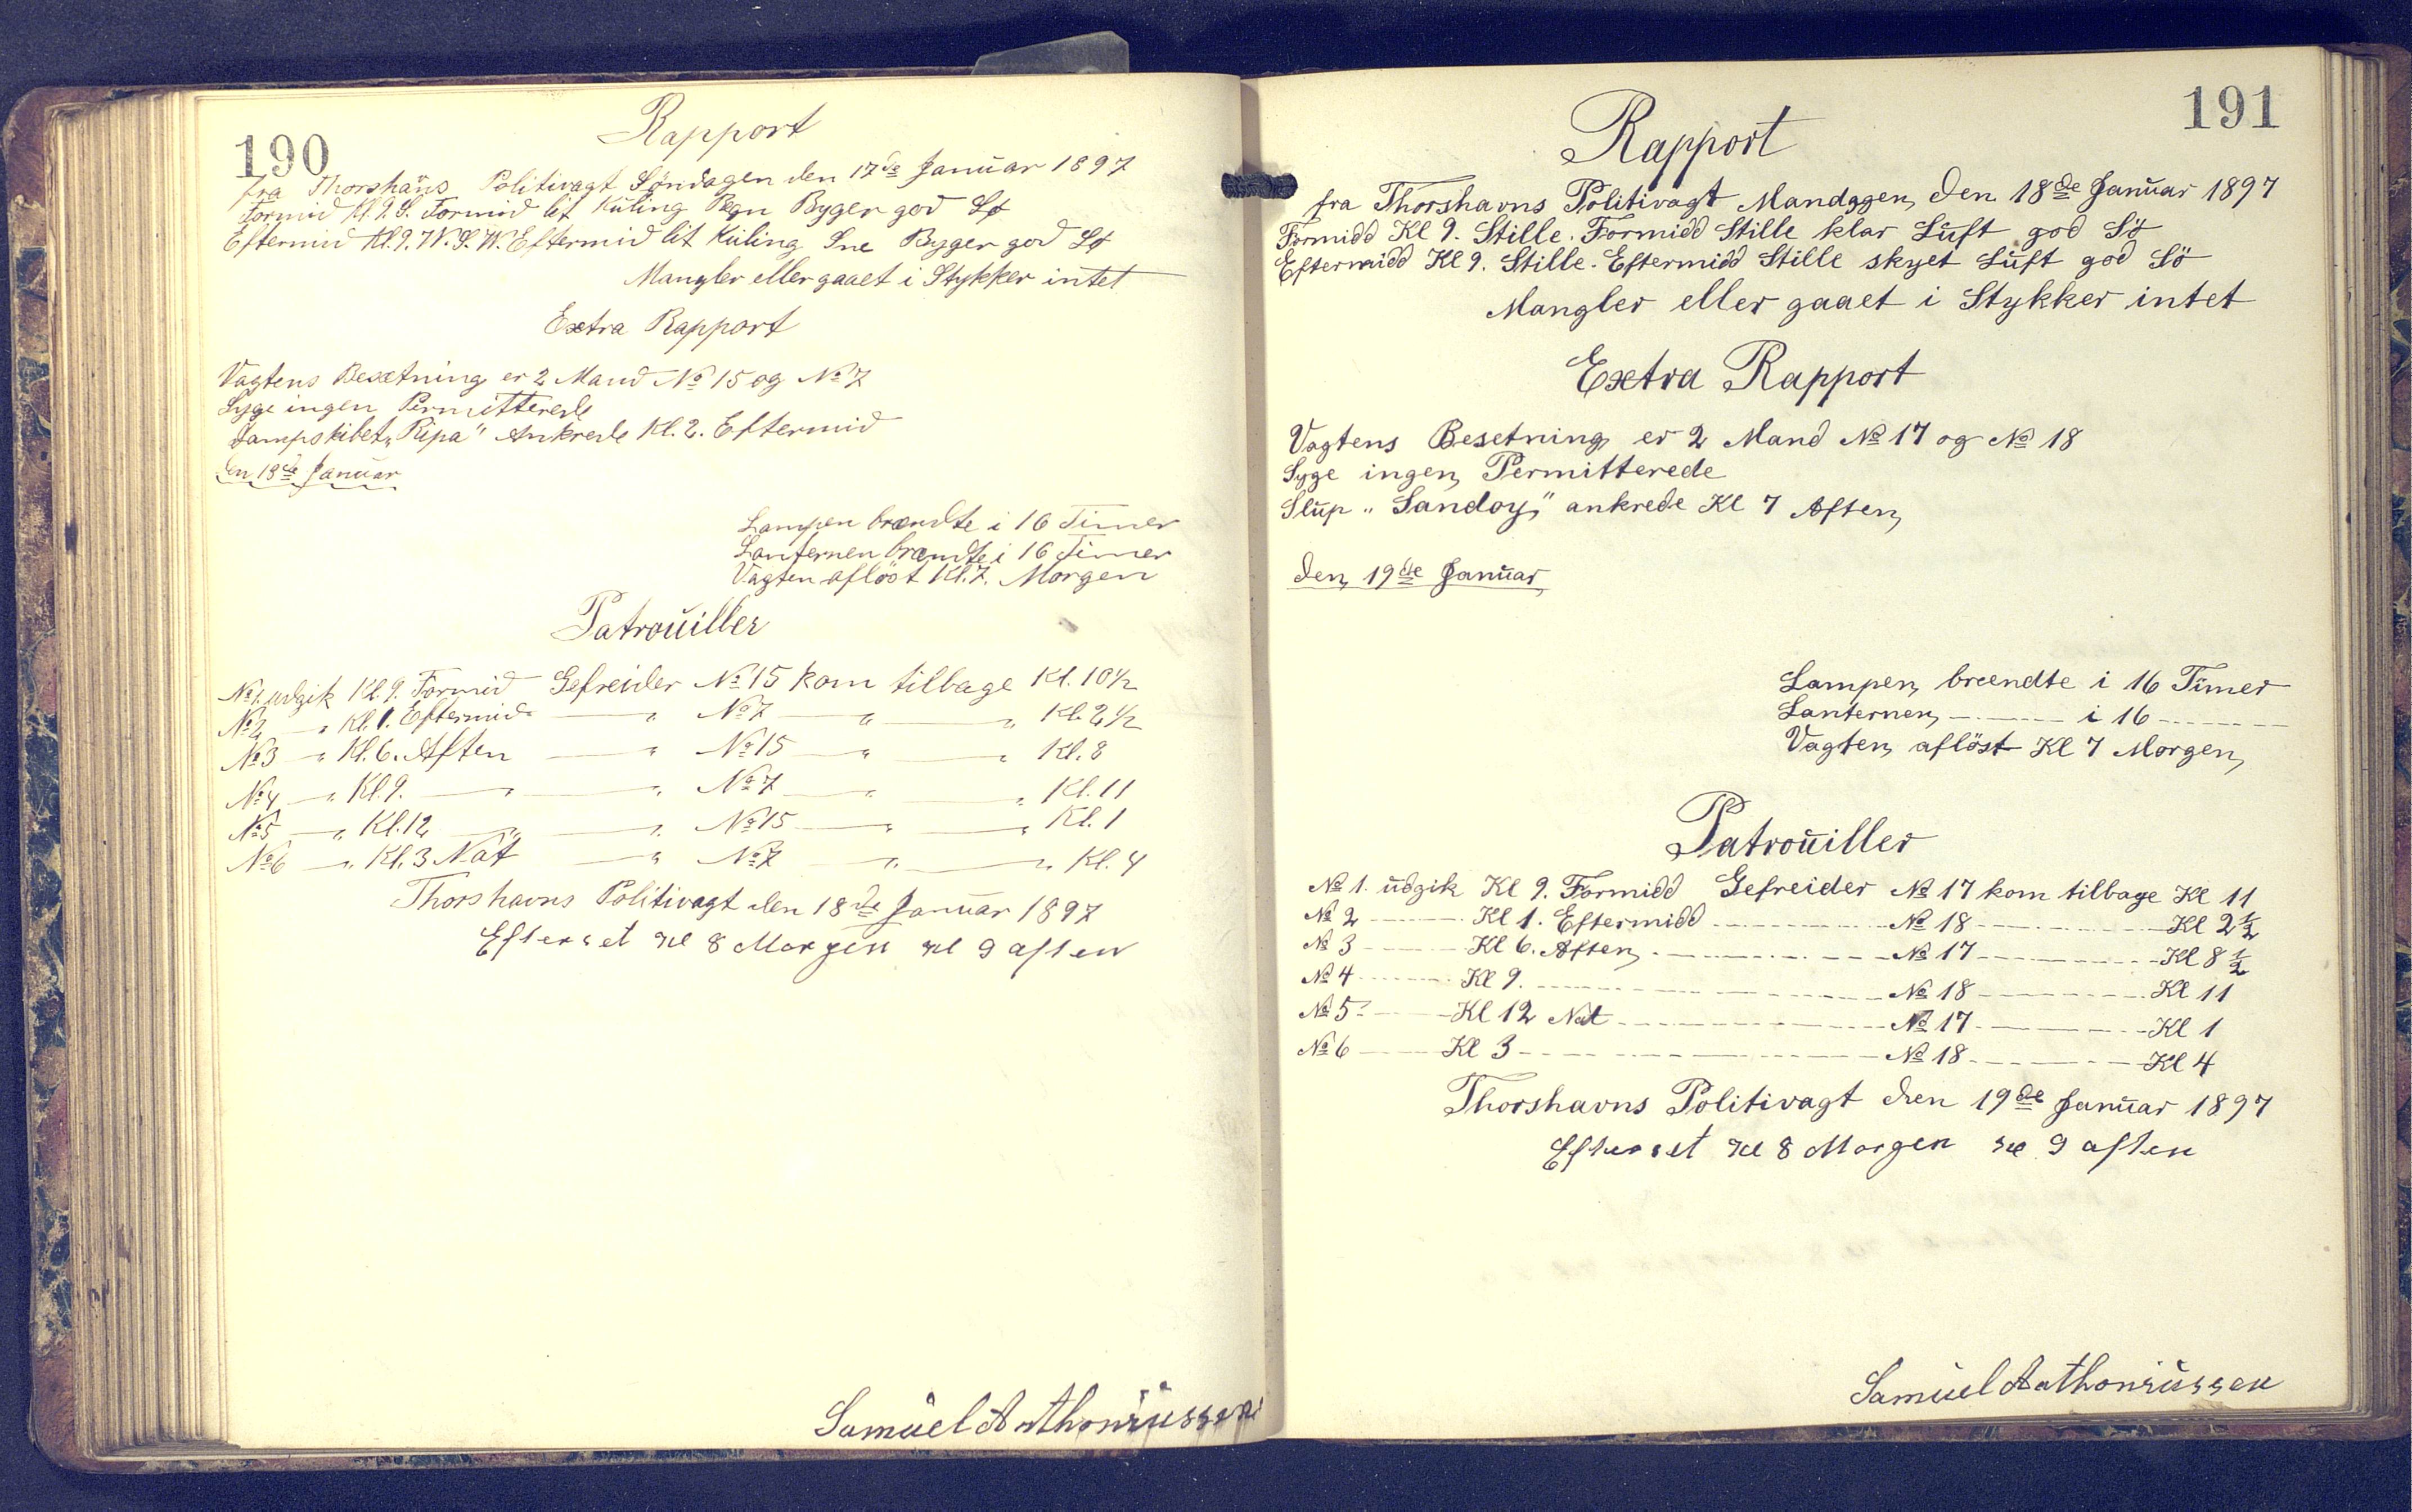 190
Rapport
fra Thorshavns Politivagt Söndagen den 17de Januar 1897
Formid Kl. 9. S. Formid lit Kuling Regn Byger god Sø
Eftermid Kl. 9. W.S.W. Eftermid lit Kuling Sne Byger god Sø
Mangler eller gaaet i Stykker intet
Extra Rapport
Vagtens Besætning er 2 Mand No 15 og No 7
Syge ingen Permitterede
Dampskibet „Ripa" Ankrede Kl. 2. Eftermid
den 18de Januar
Lampen brændte i 16 Timer
Lanternen brændte i 16 Timer
Vagten aflöst Kl. 7. Morgen
Patrouiller
No 1. udgik Kl. 9. Formid Gefreider No 15 kom tilbage Kl. 10 1/2
No 2 — „ Kl. 1. Eftermid — „ No 7 — „ — „ Kl. 2 1/2
No 3 — „ Kl. 6. Aften — „ No 15 — „ — „ Kl. 8
No 4 — „ Kl. 9. — „ — „ No 7 — „ — „ Kl. 11
No 5 — „ Kl. 12 — „ — „ No 15 — „ — „ Kl. 1
No 6 — „ Kl. 3 Nat — „ No 7 — „ — „ Kl. 4
Thorshavns Politivagt den 18de Januar 1897
Efterset Kl 8 Morgen Kl 9 aften
Samuel Anthoniussen
191
Rapport
fra Thorshavns Politivagt Mandagen, den 18de Januar 1897
Formidd Kl 9. Stille. Formidd Stille klar Luft god Sö
Eftermidd Kl 9. Stille. Eftermidd Stille skyet Luft god Sö
Mangler eller gaaet i Stykker intet
Extra Rapport
Vagtens Besetning er 2 Mand No 17 og No 18
Syge ingen Permitterede
Slup „Sandoy" ankrede Kl 7 Aften
den 19de Januar
Lampen brændte i 16 Timer
Lanternen — — i 16 — —
Vagten aflöst Kl 7 Morgen
Patrouiller
No 1. udgik Kl 9. Formidd Gefreider No 17 kom tilbage Kl 11
No 2 — — Kl 1. Eftermidd — — No 18 — — Kl 2 1/2
No 3 — — Kl 6. Aften — — No 17 — — Kl 8 1/2
No 4 — — Kl 9. — — No 18 — — Kl 11
No 5 — — Kl 12 Nat — — No 17 — — Kl 1
No 6 — — Kl 3 — — No 18 — — Kl 4
Thorshavns Politivagt den 19de Januar 1897
Efterset Kl 8 Morgen Kl 9 aften
Samuel Anthoniussen